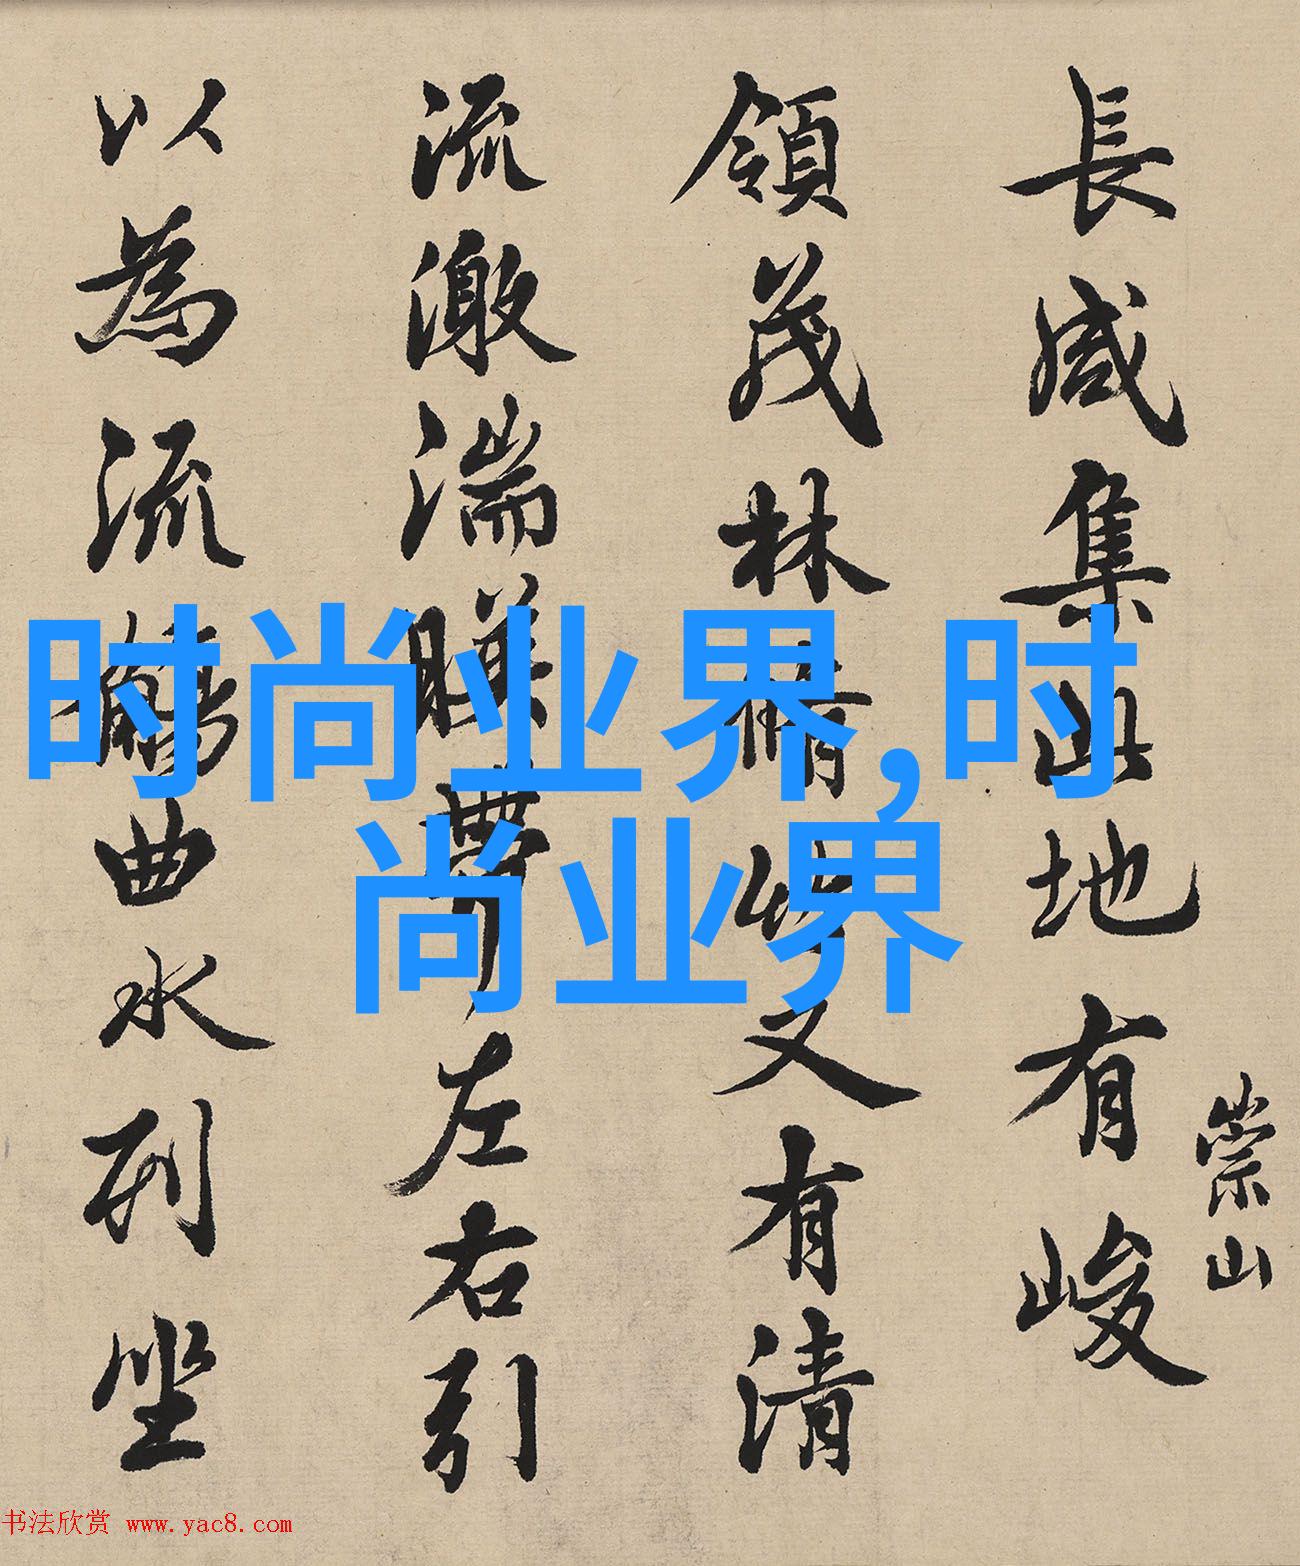 崇山
長咸集此地有峻
領茂林脩竹又有清
流激湍暎帶左右引
以為流觴曲水列坐
时尚业界,时
尚业界
书法欣赏 www.yac8.com